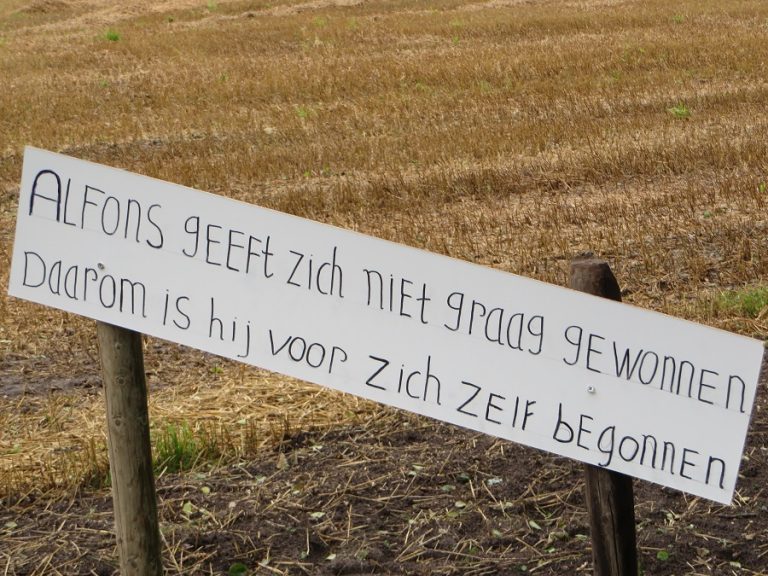 ALFONS gEEFt zich niEt graag gEwonnen
Daarom is hij voor zich zElf begonnen